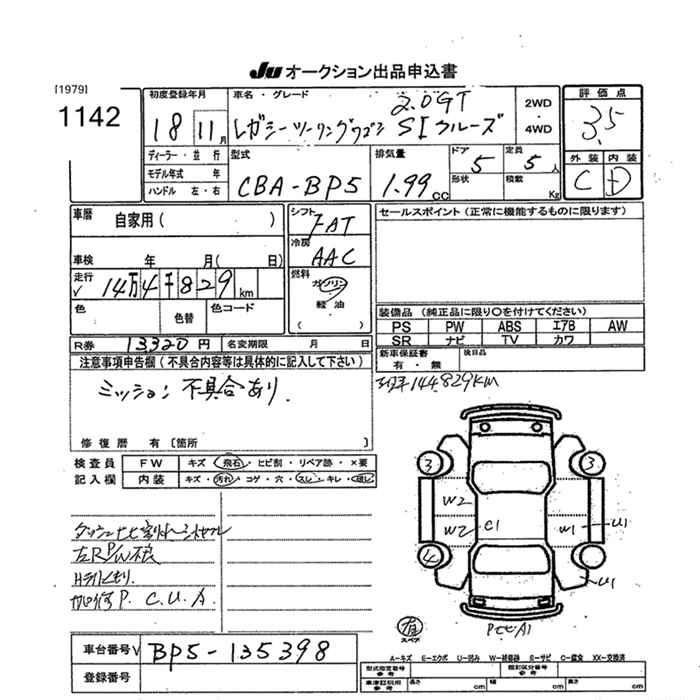 Ju オークション出品申込書
[1979]
1142
初度登録年月
18 11月
車名・グレード
2.0GT
レガシーツーリングワゴン SIクルーズ
2WD
・
4WD
評価点
3.5
外装 内装
C D
ディーラー・並行
モデル年式 年
ハンドル 左・右
型式
CBA-BP5
排気量
1.99 cc
ドア 5
形状
定員 5人
積載 Kg
車歴 自家用( )
車検 年 月( 日)
走行 14万4千829km
色 色替 色コード
シフト FAT
冷房 AAC
燃料 ガソリン
軽油
( )
セールスポイント(正常に機能するものに限ります)
装備品(純正品に限り○を付けてください)
PS PW ABS エアB AW
SR ナビ TV カワ
新車保証書
有・無
後日品
144,829KM
R券 13,320円 名変期限 月 日
注意事項申告欄(不具合内容等は具体的に記入して下さい)
ミッション 不具合あり.
修復歴 有〔箇所 〕
検査員
記入欄
FW キズ・飛石・ヒビ割・リペア跡・×要
内装 キズ・汚れ・コゲ・穴・スレ・キレ・
左R P/W不良
Hライトくもり.
P. C.U.A.
3 3
W2 W2 C1 W1 U1
4 U1
有
スペア
PセセA1
A−キズ E−エクボ U−凹み W−補修跡 S−サビ C−腐食 XX−交換済
車台番号 BP5-135398
登録番号
型式指定番号
参考
類別区分番号
参考
車庫証明用
参考
長さ cm 幅 cm 高さ cm